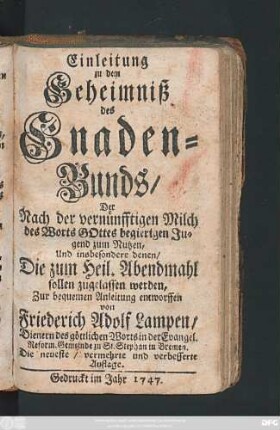 Einleitung
zu dem
Geheimniß
des
Gnaden-
Bunds/
Der
Nach der vernünfftigen Milch
des Worts GOttes begierigen Ju-
gend zum Nutzen/
Und insbesondere denen/
Die zum Heil. Abendmahl
sollen zugelassen werden,
Zur bequemen Anleitung entworffen
von
Friederich Adolf Lampen/
Dienern des göttlichen Worts in der Evangel.
Reform. Gemeinde zu St. Stephan in Bremen.
Die neueste / vermehrte und verbesserte
Auflage.
Gedruckt im Jahr 1747.